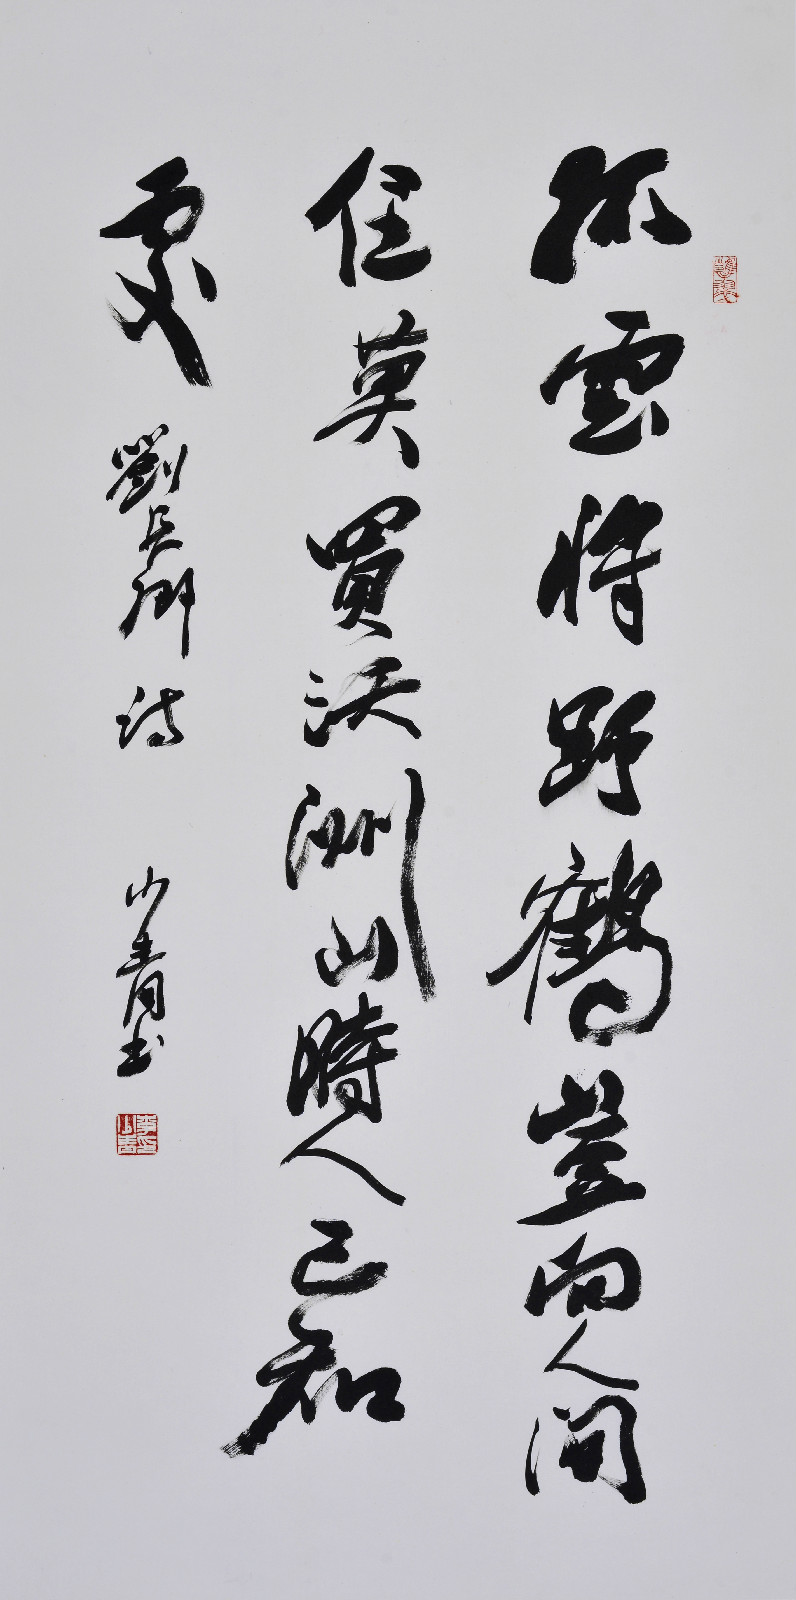 孤雲將野鶴豈向人間
住莫買沃洲山時人已知
處 劉長卿詩 山青書
李山青印